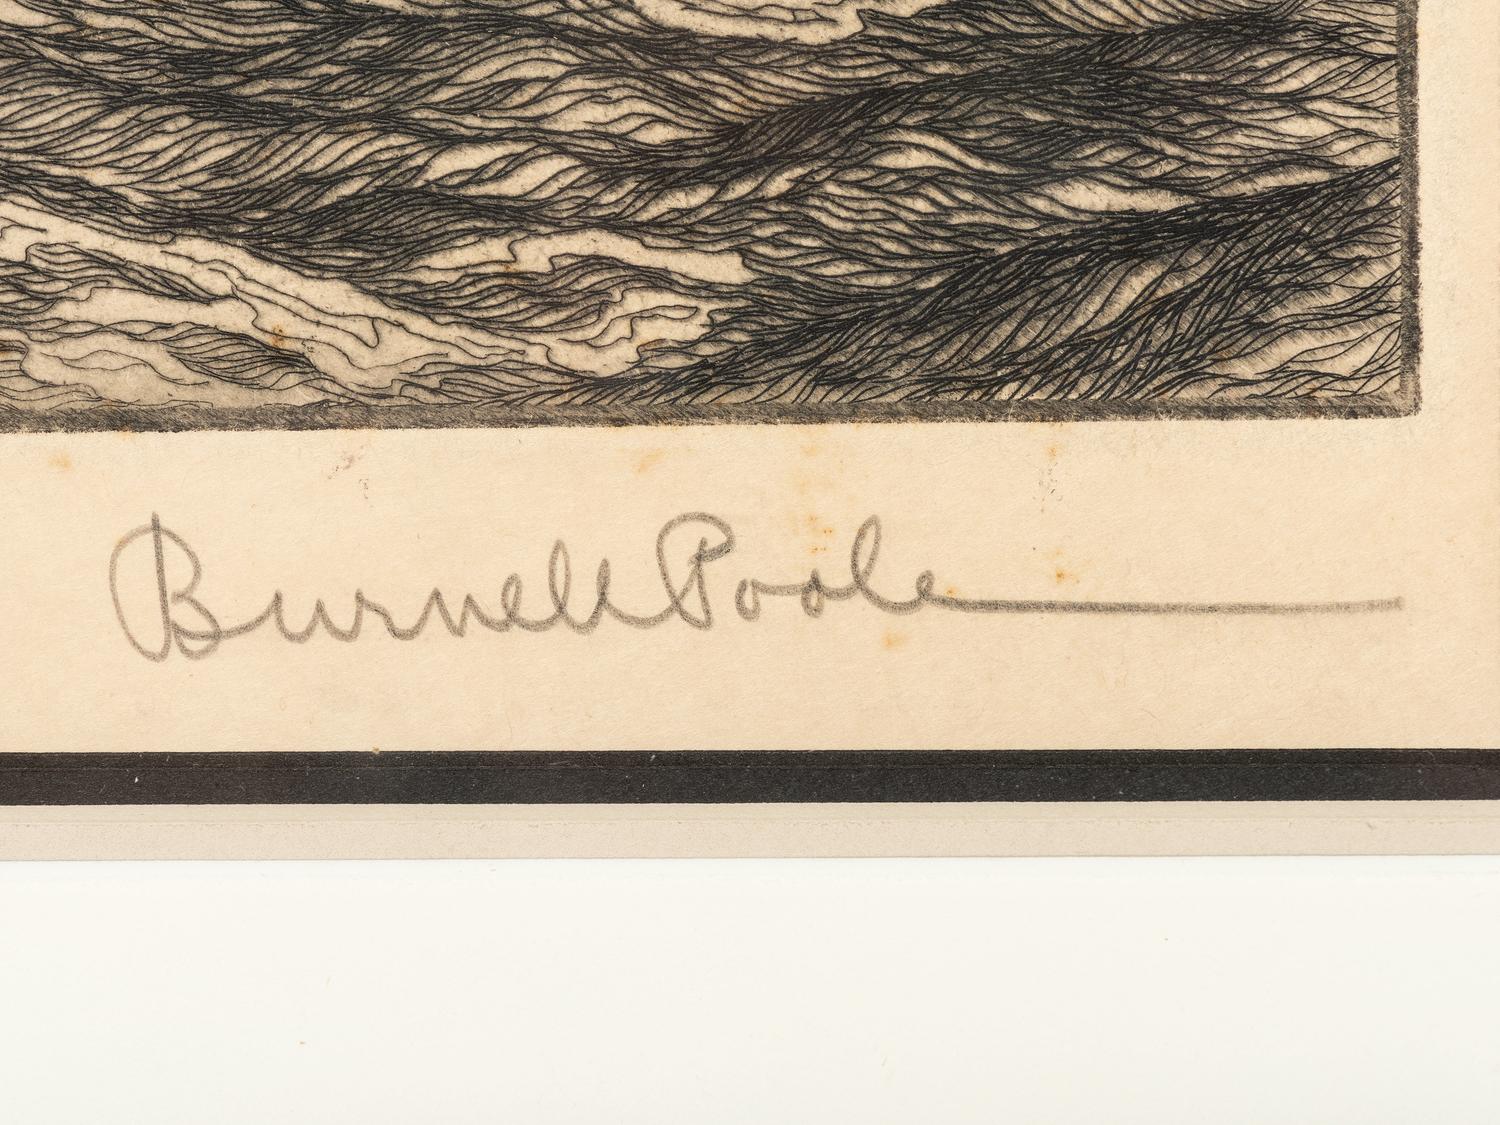 Burnell Poole